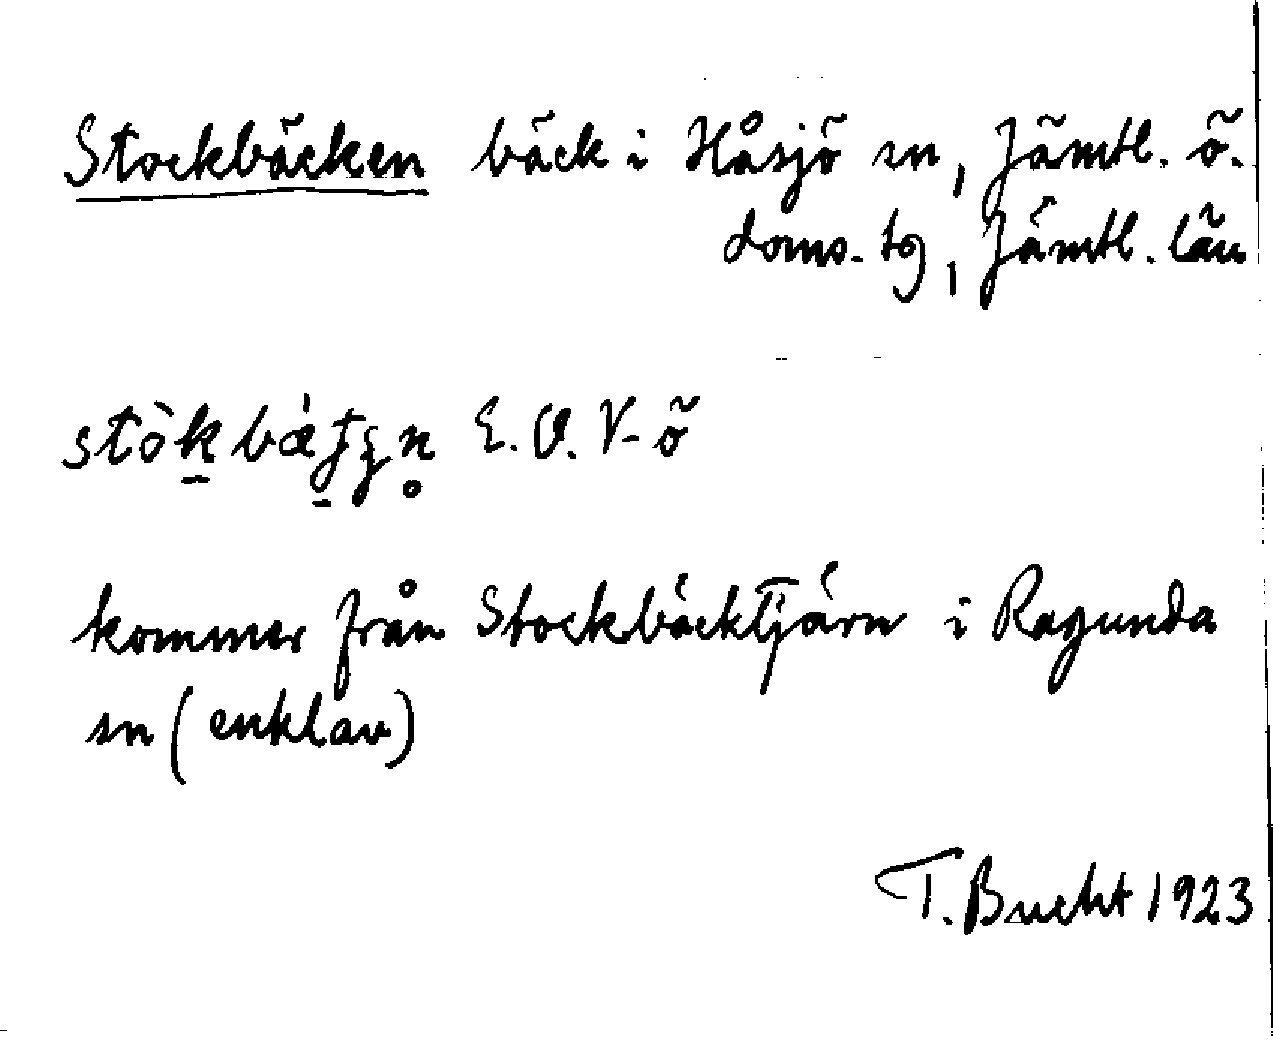 Stockbäcken bäck i Håsjö sn, Jämtl. ö.
doms. tg, Jämtl. län
E. O. V-ö
kommer från Stockbäcktjärn i Ragunda
sn (enklav)
T. Bucht 1923